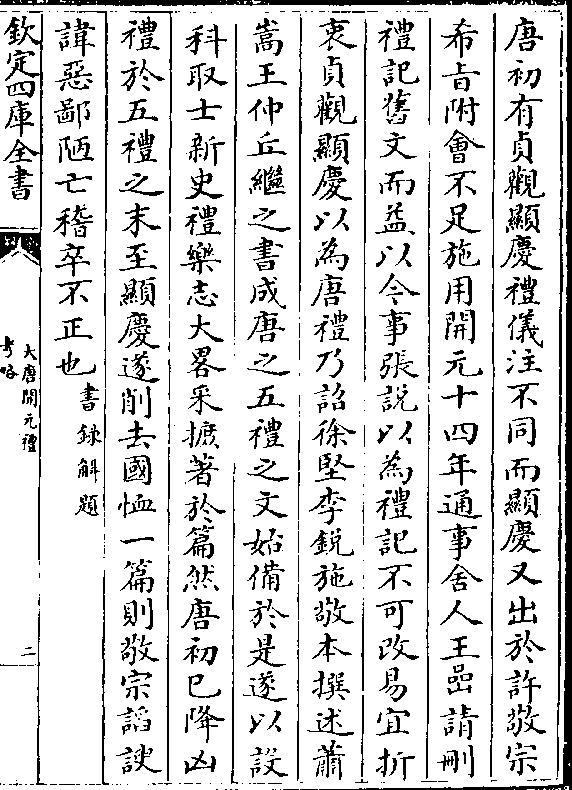 唐初有貞觀顯慶禮儀注不同而顯慶又出於許敬宗
希㫖附會不足施用開元十四年通事舍人王嵒請刪
禮記舊文而益以今事張說以為禮記不可改易宜折
衷貞觀顯慶以為唐禮乃詔徐堅李銳施敬本撰述蕭
嵩王仲丘繼之書成唐之五禮之文始備於是遂以設
科取士新史禮樂志大畧采摭著於篇然唐初已降凶
禮於五禮之末至顯慶遂削去國恤一篇則敬宗謟諛
諱惡鄙陋亡稽卒不正也書録解題
欽定四庫全書
大唐開元禮
考略
二